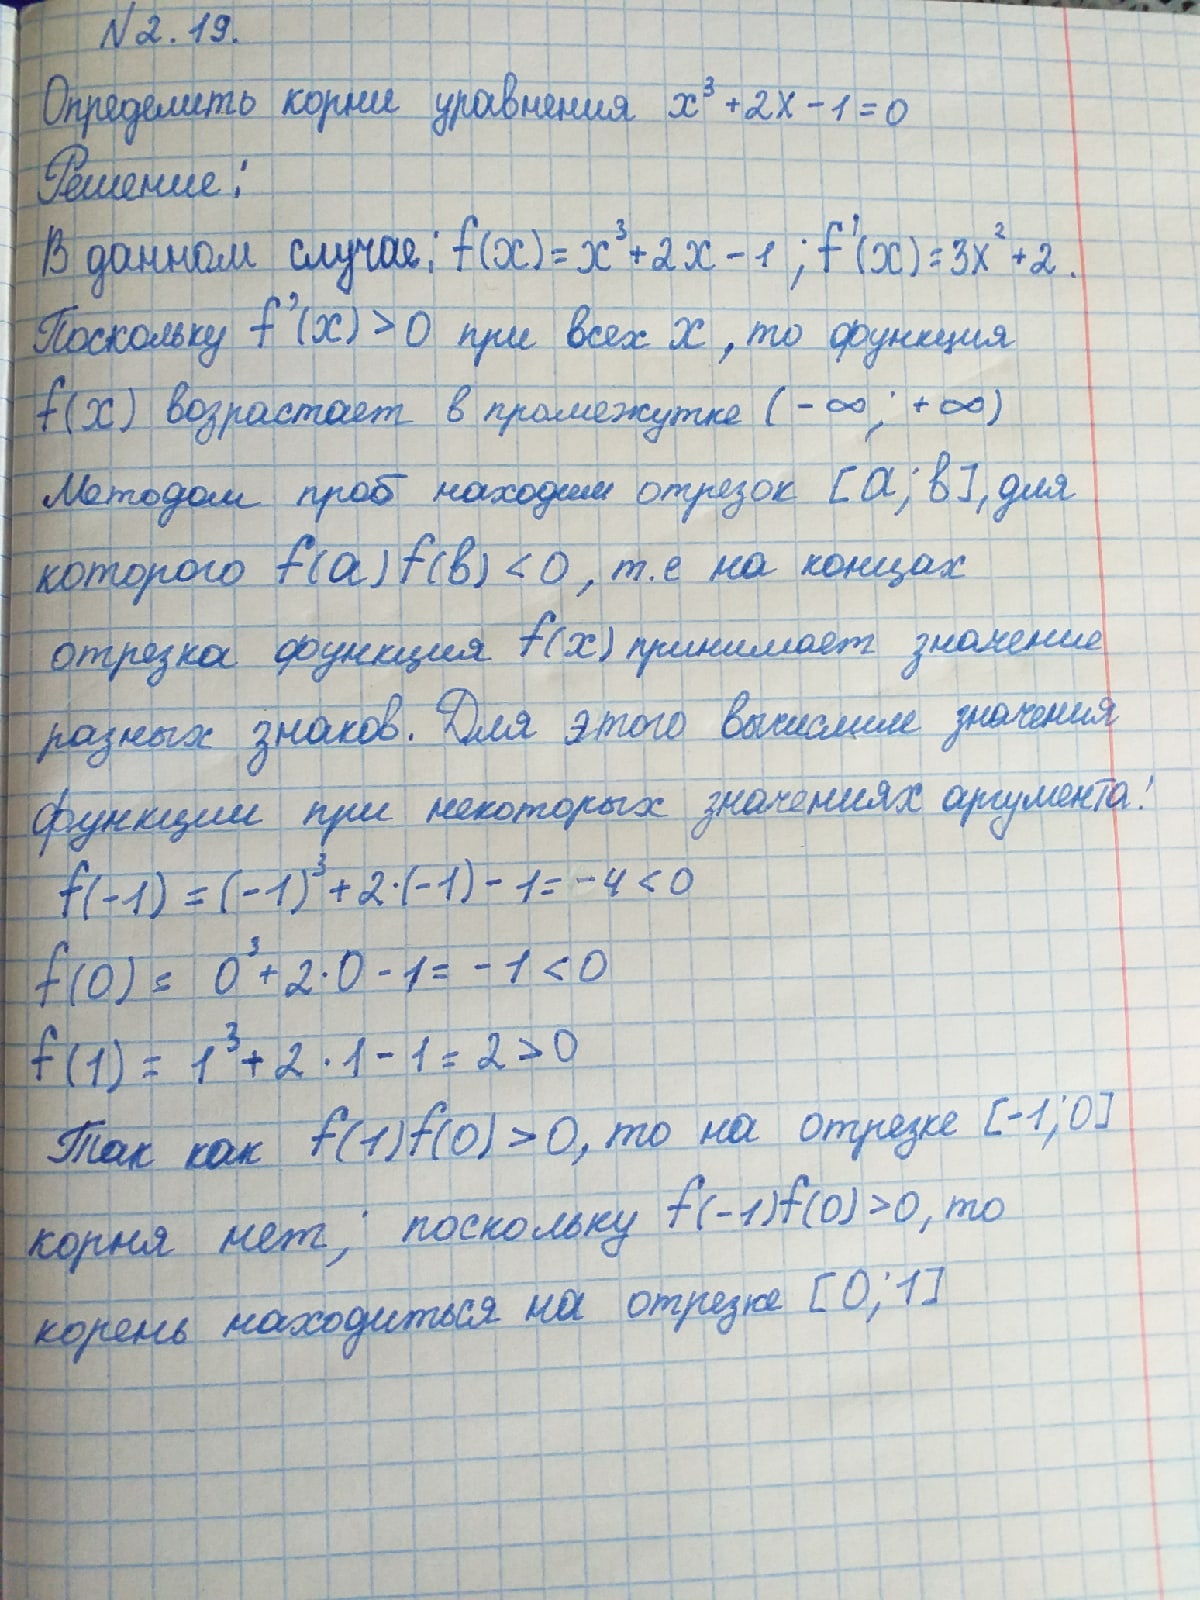 N2.19.
Определить корни уравнения x³+2x-1=0
Решение:
В данном случае: f(x)=x³+2x-1; f'(x)=3x²+2.
Поскольку f'(x)>0 при всех x, то функция
f(x) возрастает в промежутке (-∞; +∞)
Методом проб находим отрезок [a; b], для
которого f(a) f(b) <0, т.е на концах
отрезка функция f(x) принимает значение
разных знаков. Для этого вычислим значения
функции при некоторых значениях аргумента:
f(-1) = (-1)³+2·(-1)-1=-4<0
f(0) = 0³+2·0-1=-1<0
f(1) = 1³+2·1-1=2>0
Так как f(1)f(0)>0, то на отрезке [-1;0]
корня нет; поскольку f(-1)f(0)>0, то
корень находиться на отрезке [0;1]